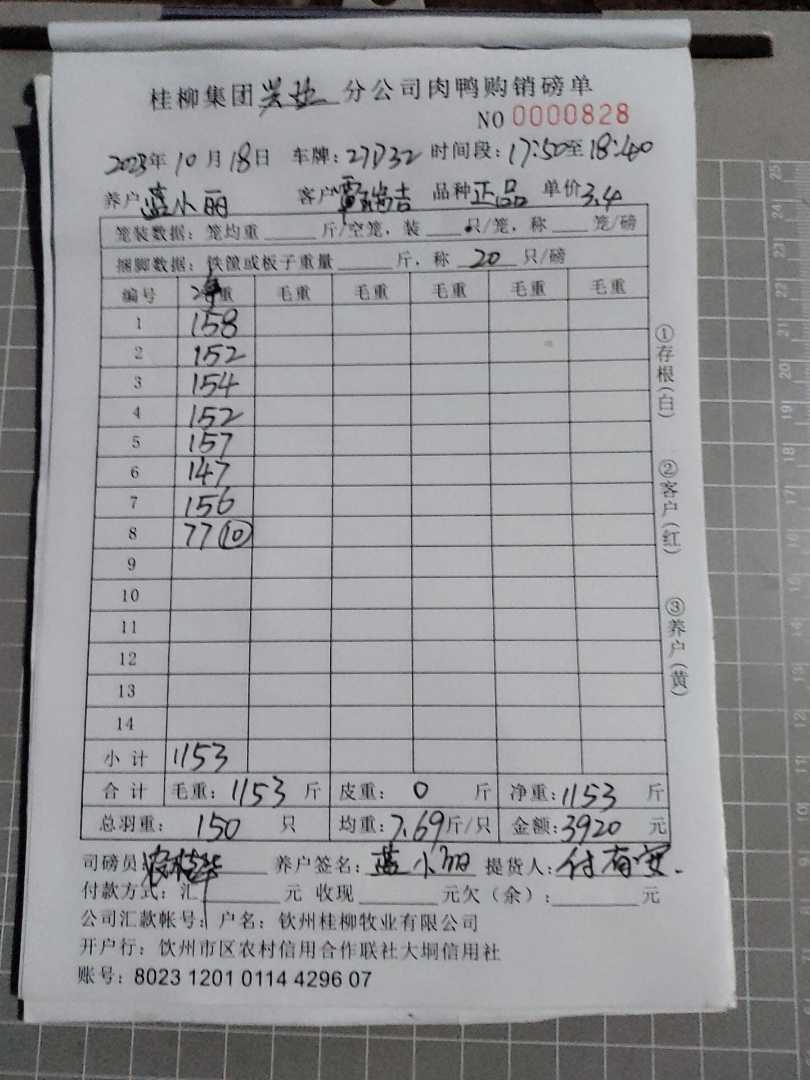 桂柳集团兴业分公司肉鸭购销磅单
NO 0000828
2023年10月18日 车牌:27D32 时间段:17:50至18:40
养户蓝小丽 客户覃瑞吉 品种正品 单价3.4
笼装数据:笼均重____斤/空笼,装____只/笼,称____笼/磅
捆脚数据:铁筐或板子重量____斤,称 20 只/磅
编号 净重 毛重 毛重 毛重 毛重 毛重
1 158
2 152
3 154
4 152
5 157
6 147
7 156
8 77 ⑩
9
10
11
12
13
14
小计 1153
合计 毛重:1153斤 皮重:0斤 净重:1153斤
总羽重:150只 均重:7.69斤/只 金额:3920元
司磅员: 养户签名:蓝小丽 提货人:付有安.
付款方式:汇____元 收现____元欠(余):____元
公司汇款帐号: 户名:钦州桂柳牧业有限公司
开户行:钦州市区农村信用合作联社大垌信用社
账号:8023 1201 0114 4296 07
①存根(白)
②客户(红)
③养户(黄)